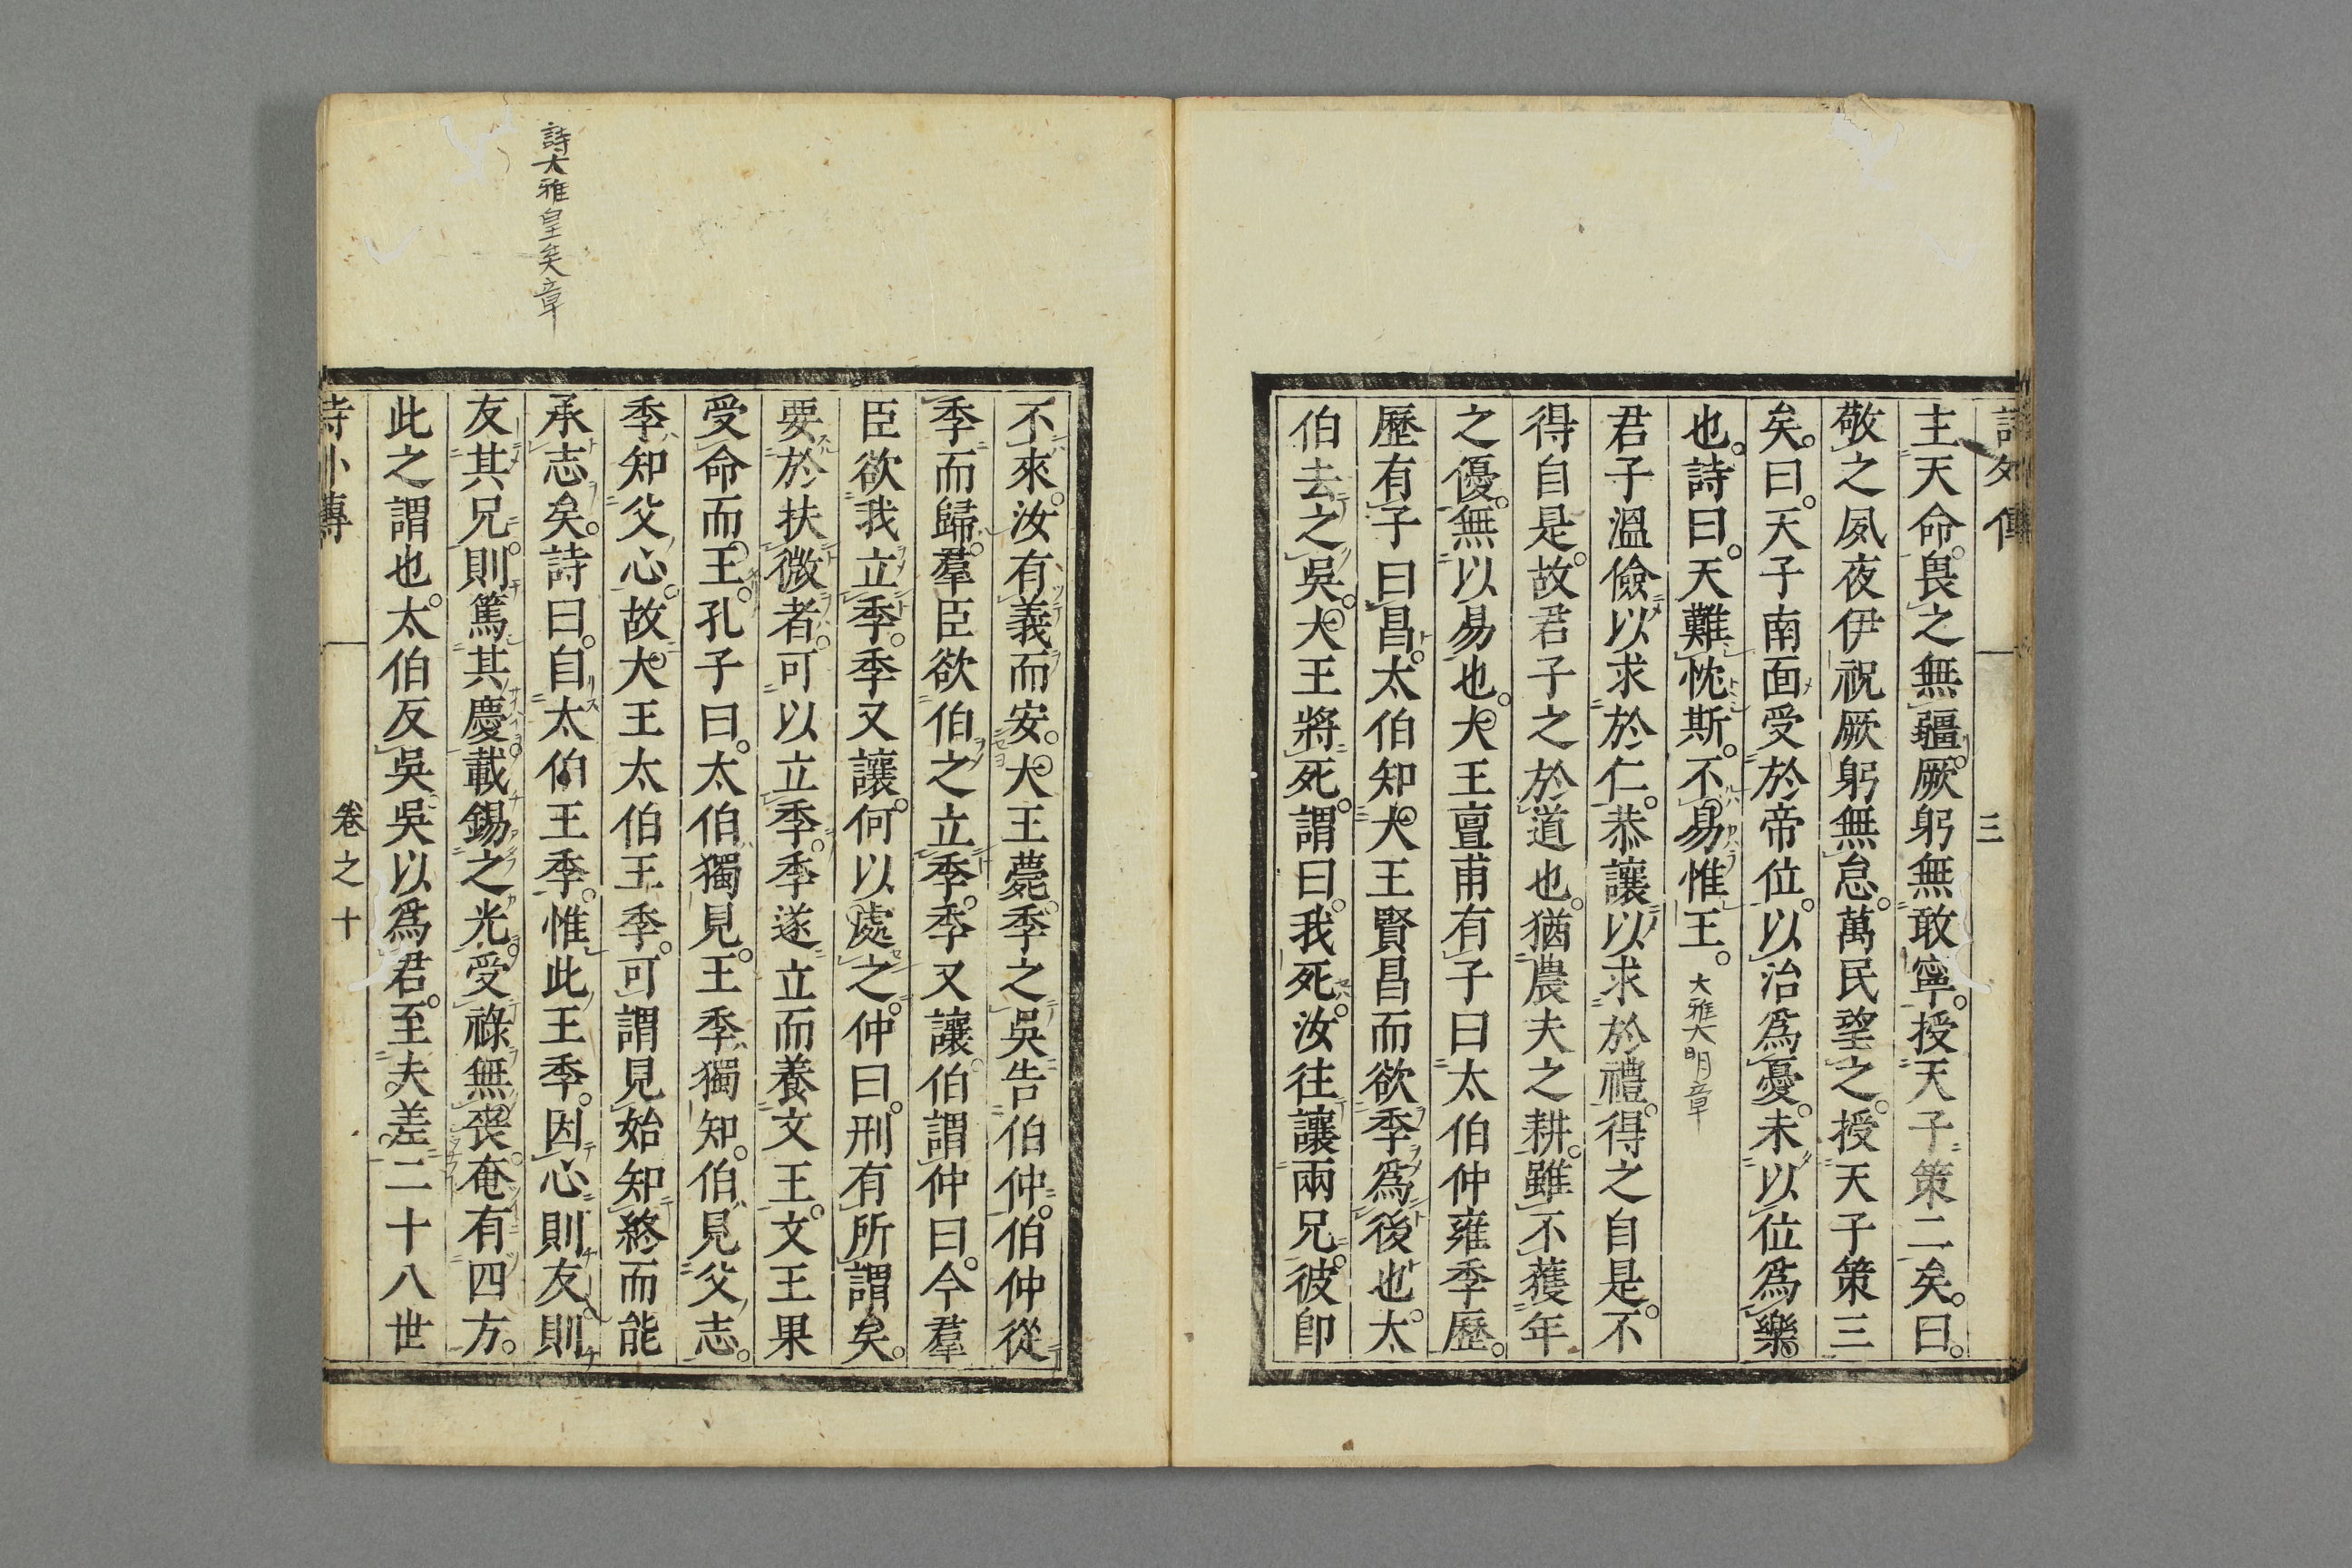 詩外傳 三
主天命。畏之無疆。厥躬無敢寧。授天子策二矣。曰。
敬之夙夜伊祝厥躬無怠。萬民望之。授天子策三
矣。曰。天子南面受於帝位。以治爲憂。未以位爲樂
也。詩曰。天難忱斯。不易惟王。大雅大明章
君子溫儉以求於仁。恭讓以求於禮。得之自是。不
得自是。故君子之於道也。猶農夫之耕。雖不獲年
之優。無以易也。大王亶甫有子曰太伯仲雍季歷。
歷有子曰昌。太伯知大王賢昌而欲季爲後也。太
伯去之吳。大王將死。謂曰。我死。汝往讓兩兄。彼卽
詩大雅皇矣章
不來。汝有義而安。大王薨。季之吳告伯仲。伯仲從
季而歸。羣臣欲伯之立季。季又讓。伯謂仲曰。今羣
臣欲我立季。季又讓。何以處之。仲曰。刑有所謂矣。
要於扶微者。可以立季。季遂立而養文王。文王果
受命而王。孔子曰。太伯獨見。王季獨知。伯見父志。
季知父心。故大王太伯王季。可謂見始知終而能
承志矣。詩曰。自太伯王季。惟此王季。因心則友則
友其兄。則篤其慶。載錫之光。受祿無喪。奄有四方。
此之謂也。太伯反吳。吳以爲君。至夫差二十八世
詩外傳 卷之十